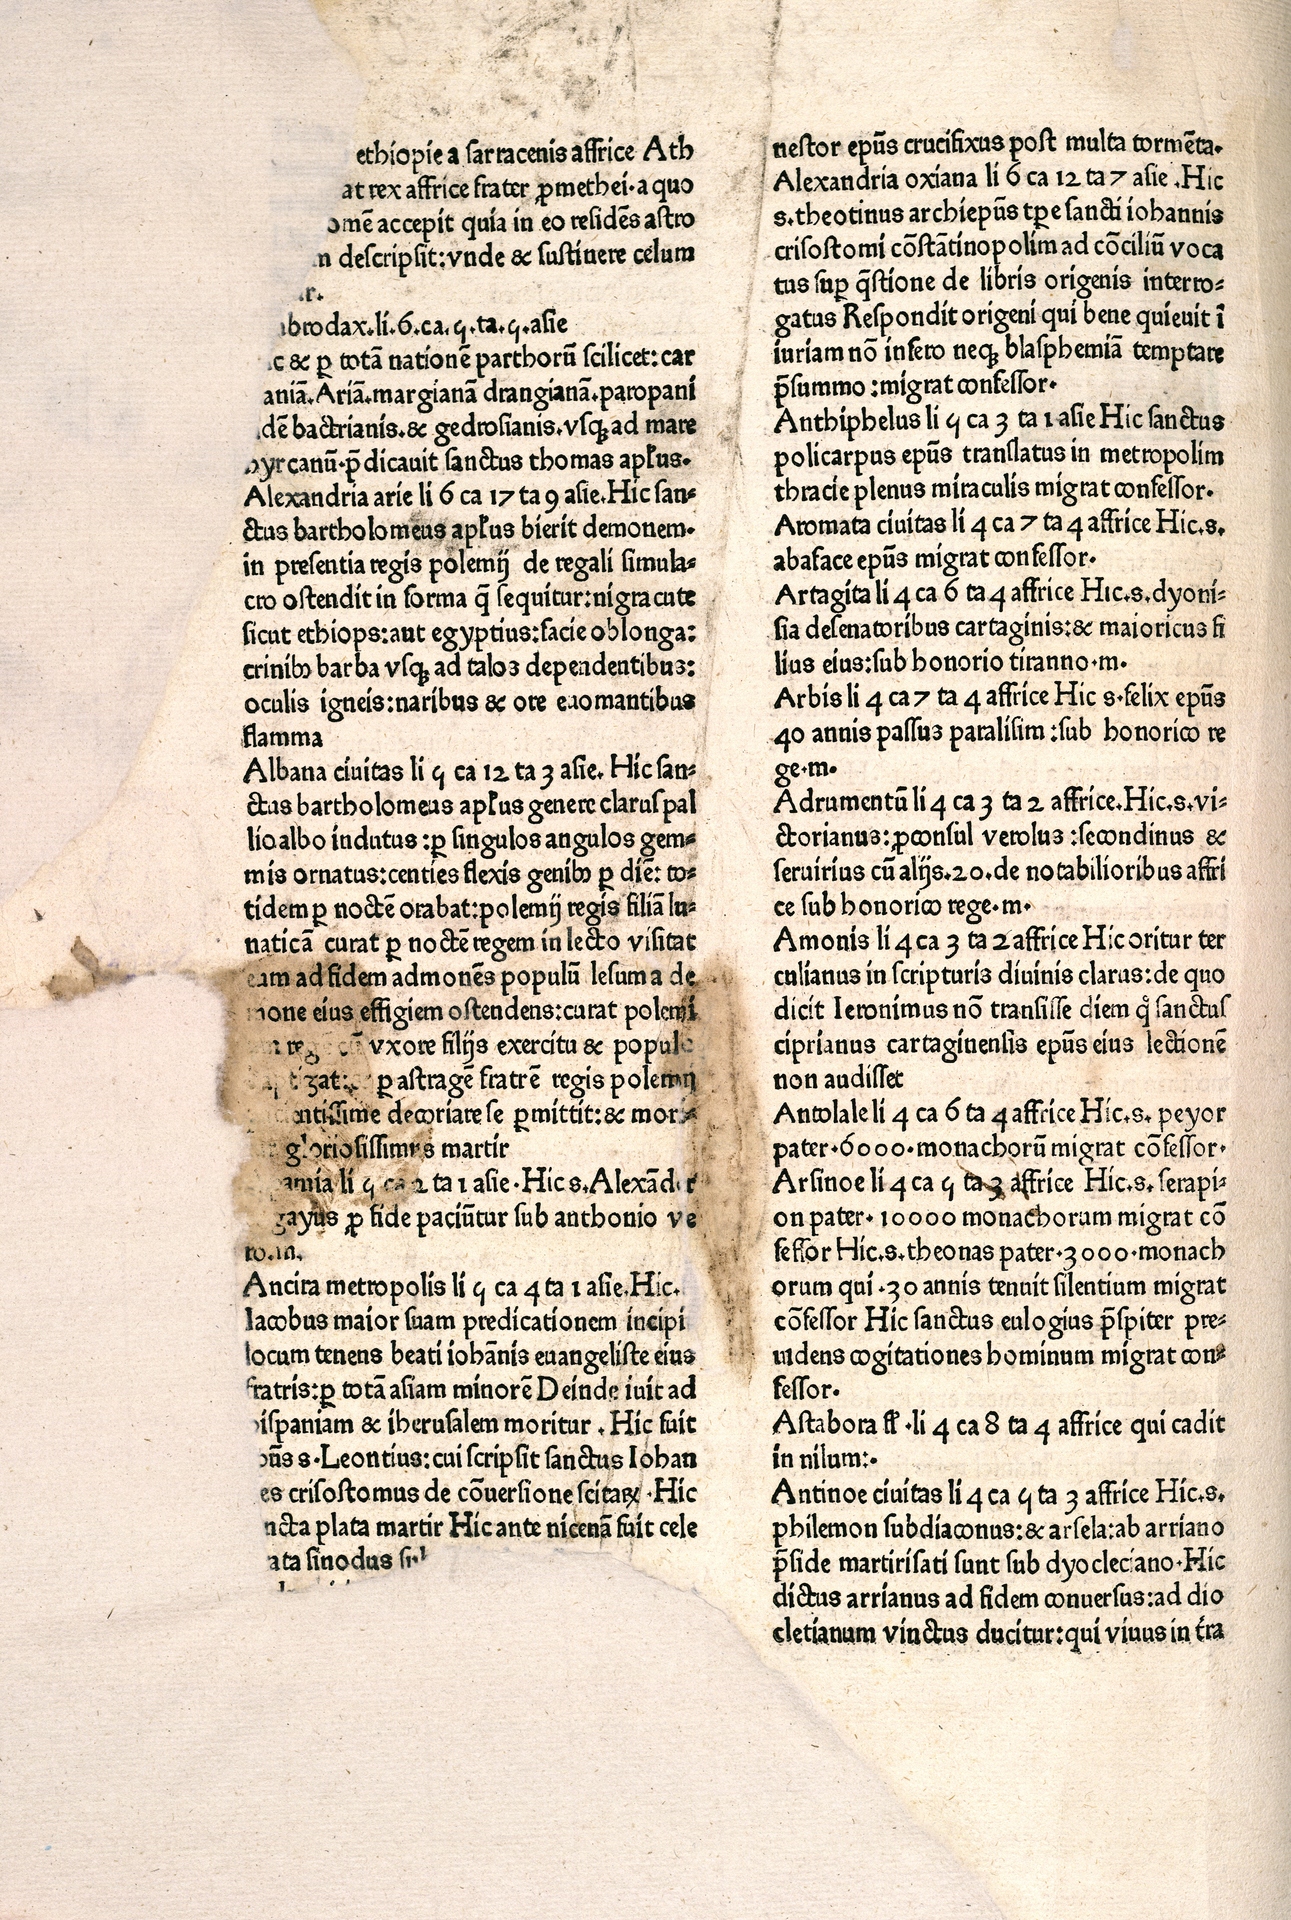 ethiopie a sarracenis affrice Ath
at rex affrice frater ꝓmethei·a quo
omē accepit quia in eo residēs astro
n descripsit:vnde & sustinere celum
ur.
brodax.li.6.ca.ꝗ.ta.ꝗ.asie
c & ꝑ totā nationē parthorū scilicet:car
aniā.Ariā.margianā drangianā.paropani
dē bactrianis.& gedrosianis.vsqꝫ ad mare
hyrcanū·p̄dicauit sanctus thomas apl̄us.
Alexandria arie li 6 ca 17 ta 9 asie.Hic san⸗
ctus bartholomeus apl̄us bierit demonem.
in presentia regis polemij de regali simula⸗
cro ostendit in forma q̄ sequitur:nigra cute
sicut ethiops:aut egyptius:facie oblonga:
crinibꝫ barba vsqꝫ ad talos dependentibus:
oculis igneis:naribus & ore euomantibus
flamma
Albana ciuitas li ꝗ ca 12 ta 3 asie. Hic san⸗
ctus bartholomeus apl̄us genere clarus pal
lio albo indutus :ꝑ singulos angulos gem⸗
mis ornatus:centies flexis genibꝫ ꝑ diē: to⸗
tidem ꝑ noctē orabat:polemij regis filiā lu⸗
naticā curat ꝑ noctē regem in lecto visitat
eum ad fidem admonēs populū Iesum a de
mone eius effigiem ostendens:curat polemi
reg cū vxore filijs exercitu & populo
ꝑ astragē fratrē regis polemij
decoriare se ꝑmittit:& mori⸗
gloriosissimus martir
amia li ꝗ ca 2 ta 1 asie·Hic s.Alexāder
gayus ꝓ fide paciūtur sub anthonio ve
ro.m.
Ancira metropolis li ꝗ ca 4 ta 1 asie.Hic.
Iacobus maior suam predicationem incipi
locum tenens beati iohānis euangeliste eius
fratris:ꝑ totā asiam minorē Deinde iuit ad
hispaniam & iherusalem moritur . Hic fuit
pūs s·Leontius:cui scripsit sanctus Iohan
es crisostomus de cōuersione scitaꝝ ·Hic
ncta plata martir Hic ante nicenā fuit cele
ata sinodus
nestor epūs crucifixus post multa tormēta.
Alexandria oxiana li 6 ca 12 ta 7 asie .Hic
s.theotinus archiepūs tꝑe sancti iohannis
crisostomi cōstātinopolim ad cōciliū voca
tus suꝑ q̄stione de libris origenis interro⸗
gatus Respondit origeni qui bene quieuit ī
iuriam nō infero neqꝫ blasphemiā temptare
p̄summo :migrat confessor.
Anthiphelus li ꝗ ca 3 ta 1 asie Hic sanctus
policarpus epūs translatus in metropolim
thracie plenus miraculis migrat confessor.
Aromata ciuitas li 4 ca 7 ta 4 affrice Hic.s.
abaface epūs migrat confessor.
Artagita li 4 ca 6 ta 4 affrice Hic.s.dyoni⸗
sia desenatoribus cartaginis:& maioricus fi
lius eius:sub honorio tiranno·m.
Arbis li 4 ca 7 ta 4 affrice Hic s·felix epūs
40 annis passus paralisim :sub honorico re
ge·m.
Adrumentū li 4 ca 3 ta 2 affrice.Hic.s.vi⸗
ctorianus:ꝓconsul verolus :secondinus &
seruirius cū alijs.20.de notabilioribus affri
ce sub honorico rege·m.
Amonis li 4 ca 3 ta 2 affrice Hic oritur ter
culianus in scripturis diuinis clarus:de quo
dicit Ieronimus nō transisse diem q̄ sanctus
ciprianus cartaginensis epūs eius lectionē
non audisset
Antolale li 4 ca 6 ta 4 affrice Hic.s. peyor
pater·6000·monachorū migrat cōfessor.
Arsinoe li 4 ca ꝗ ta 3 affrice Hic.s. serapi⸗
on pater· 10000 monachorum migrat cō
fessor Hic.s.theonas pater·3000·monach
orum qui ·30 annis tenuit silentium migrat
cōfessor Hic sanctus eulogius p̄spiter pre⸗
uidens cogitationes hominum migrat con⸗
fessor.
Astabora fl̄ ·li 4 ca 8 ta 4 affrice qui cadit
in nilum:.
Antinoe ciuitas li 4 ca ꝗ ta 3 affrice Hic.s.
philemon subdiaconus:& arsela:ab arriano
p̄side martirisati sunt sub dyocleciano·Hic
dictus arrianus ad fidem conuersus:ad dio
cletianum vinctus ducitur:qui viuus in t̄ra